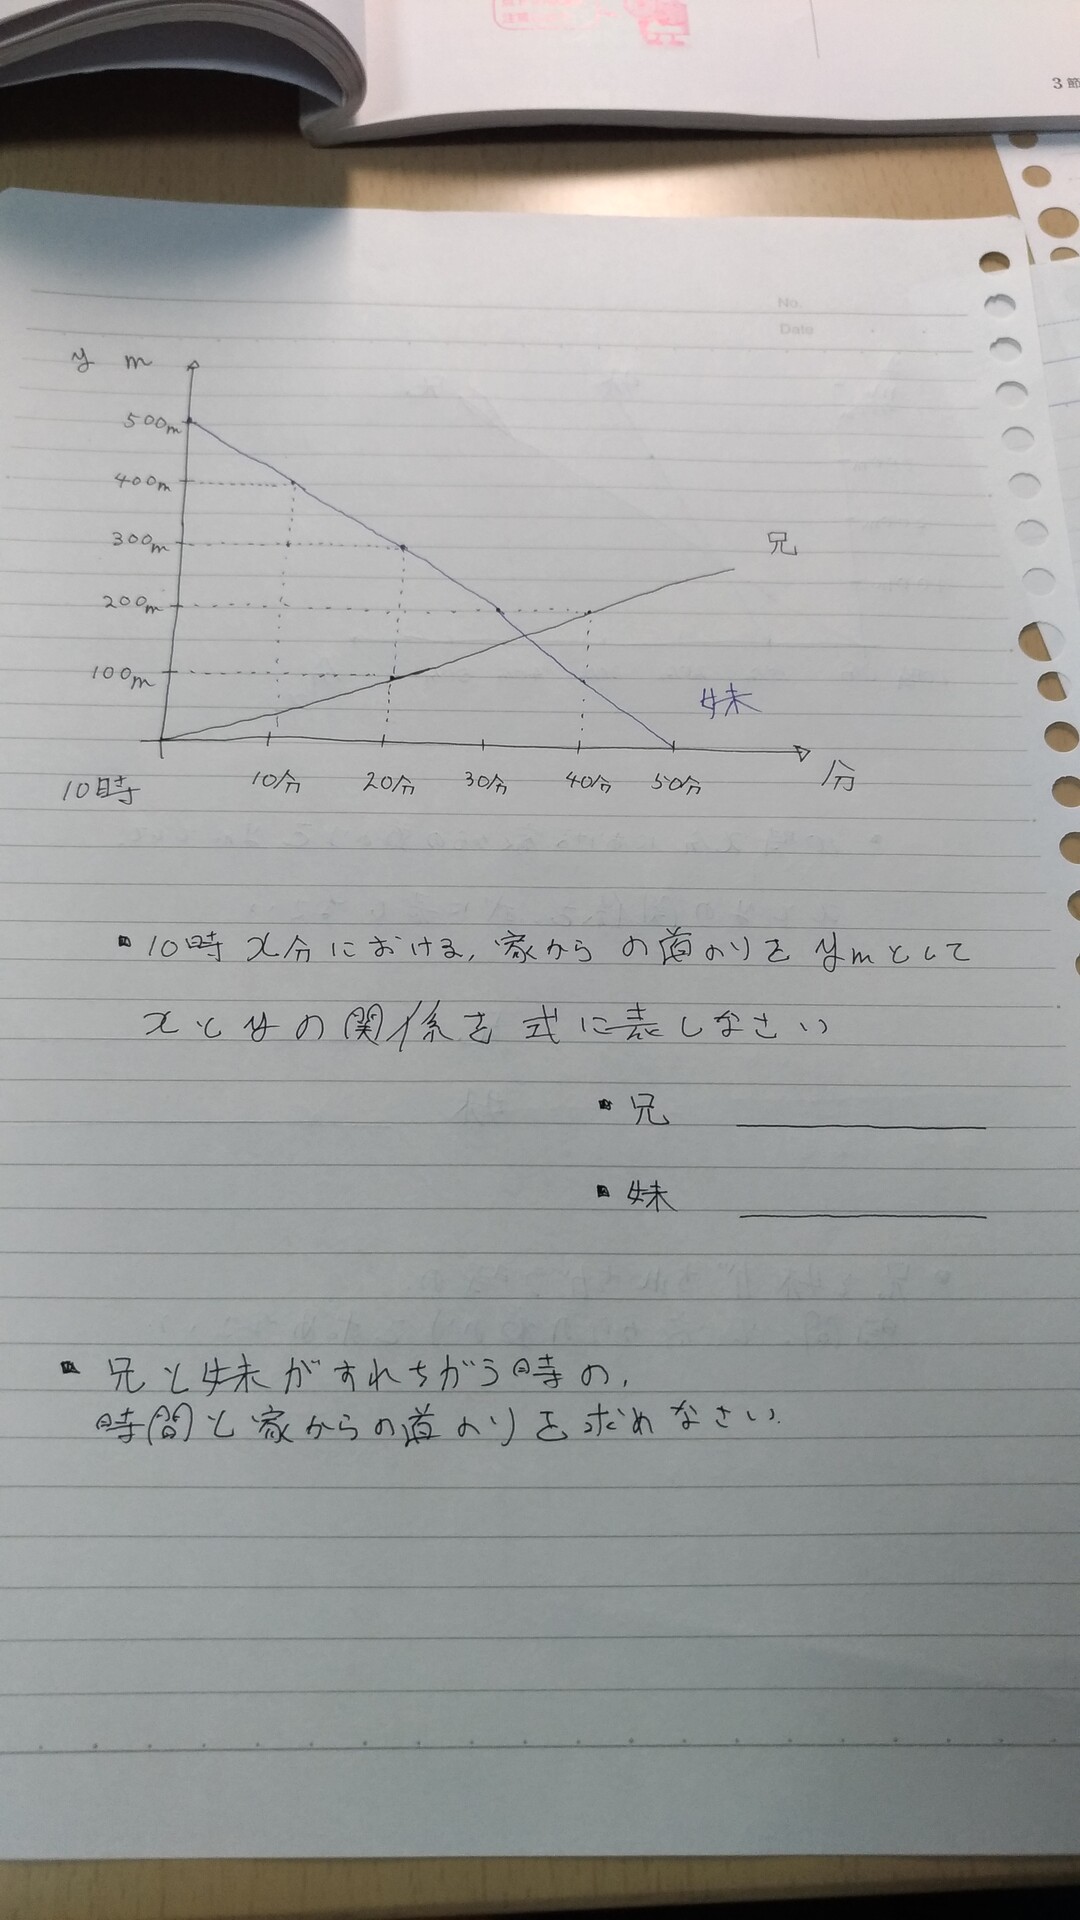 3節
No.
Date
y m
500m
400m
300m
兄
200m
100m
妹
10時 10分 20分 30分 40分 50分 分
10時 x分における, 家からの道のりを ymとして
xとyの関係を 式に表しなさい
兄
妹
兄と妹がすれちがう時の,
時間と家からの道のりを求めなさい.